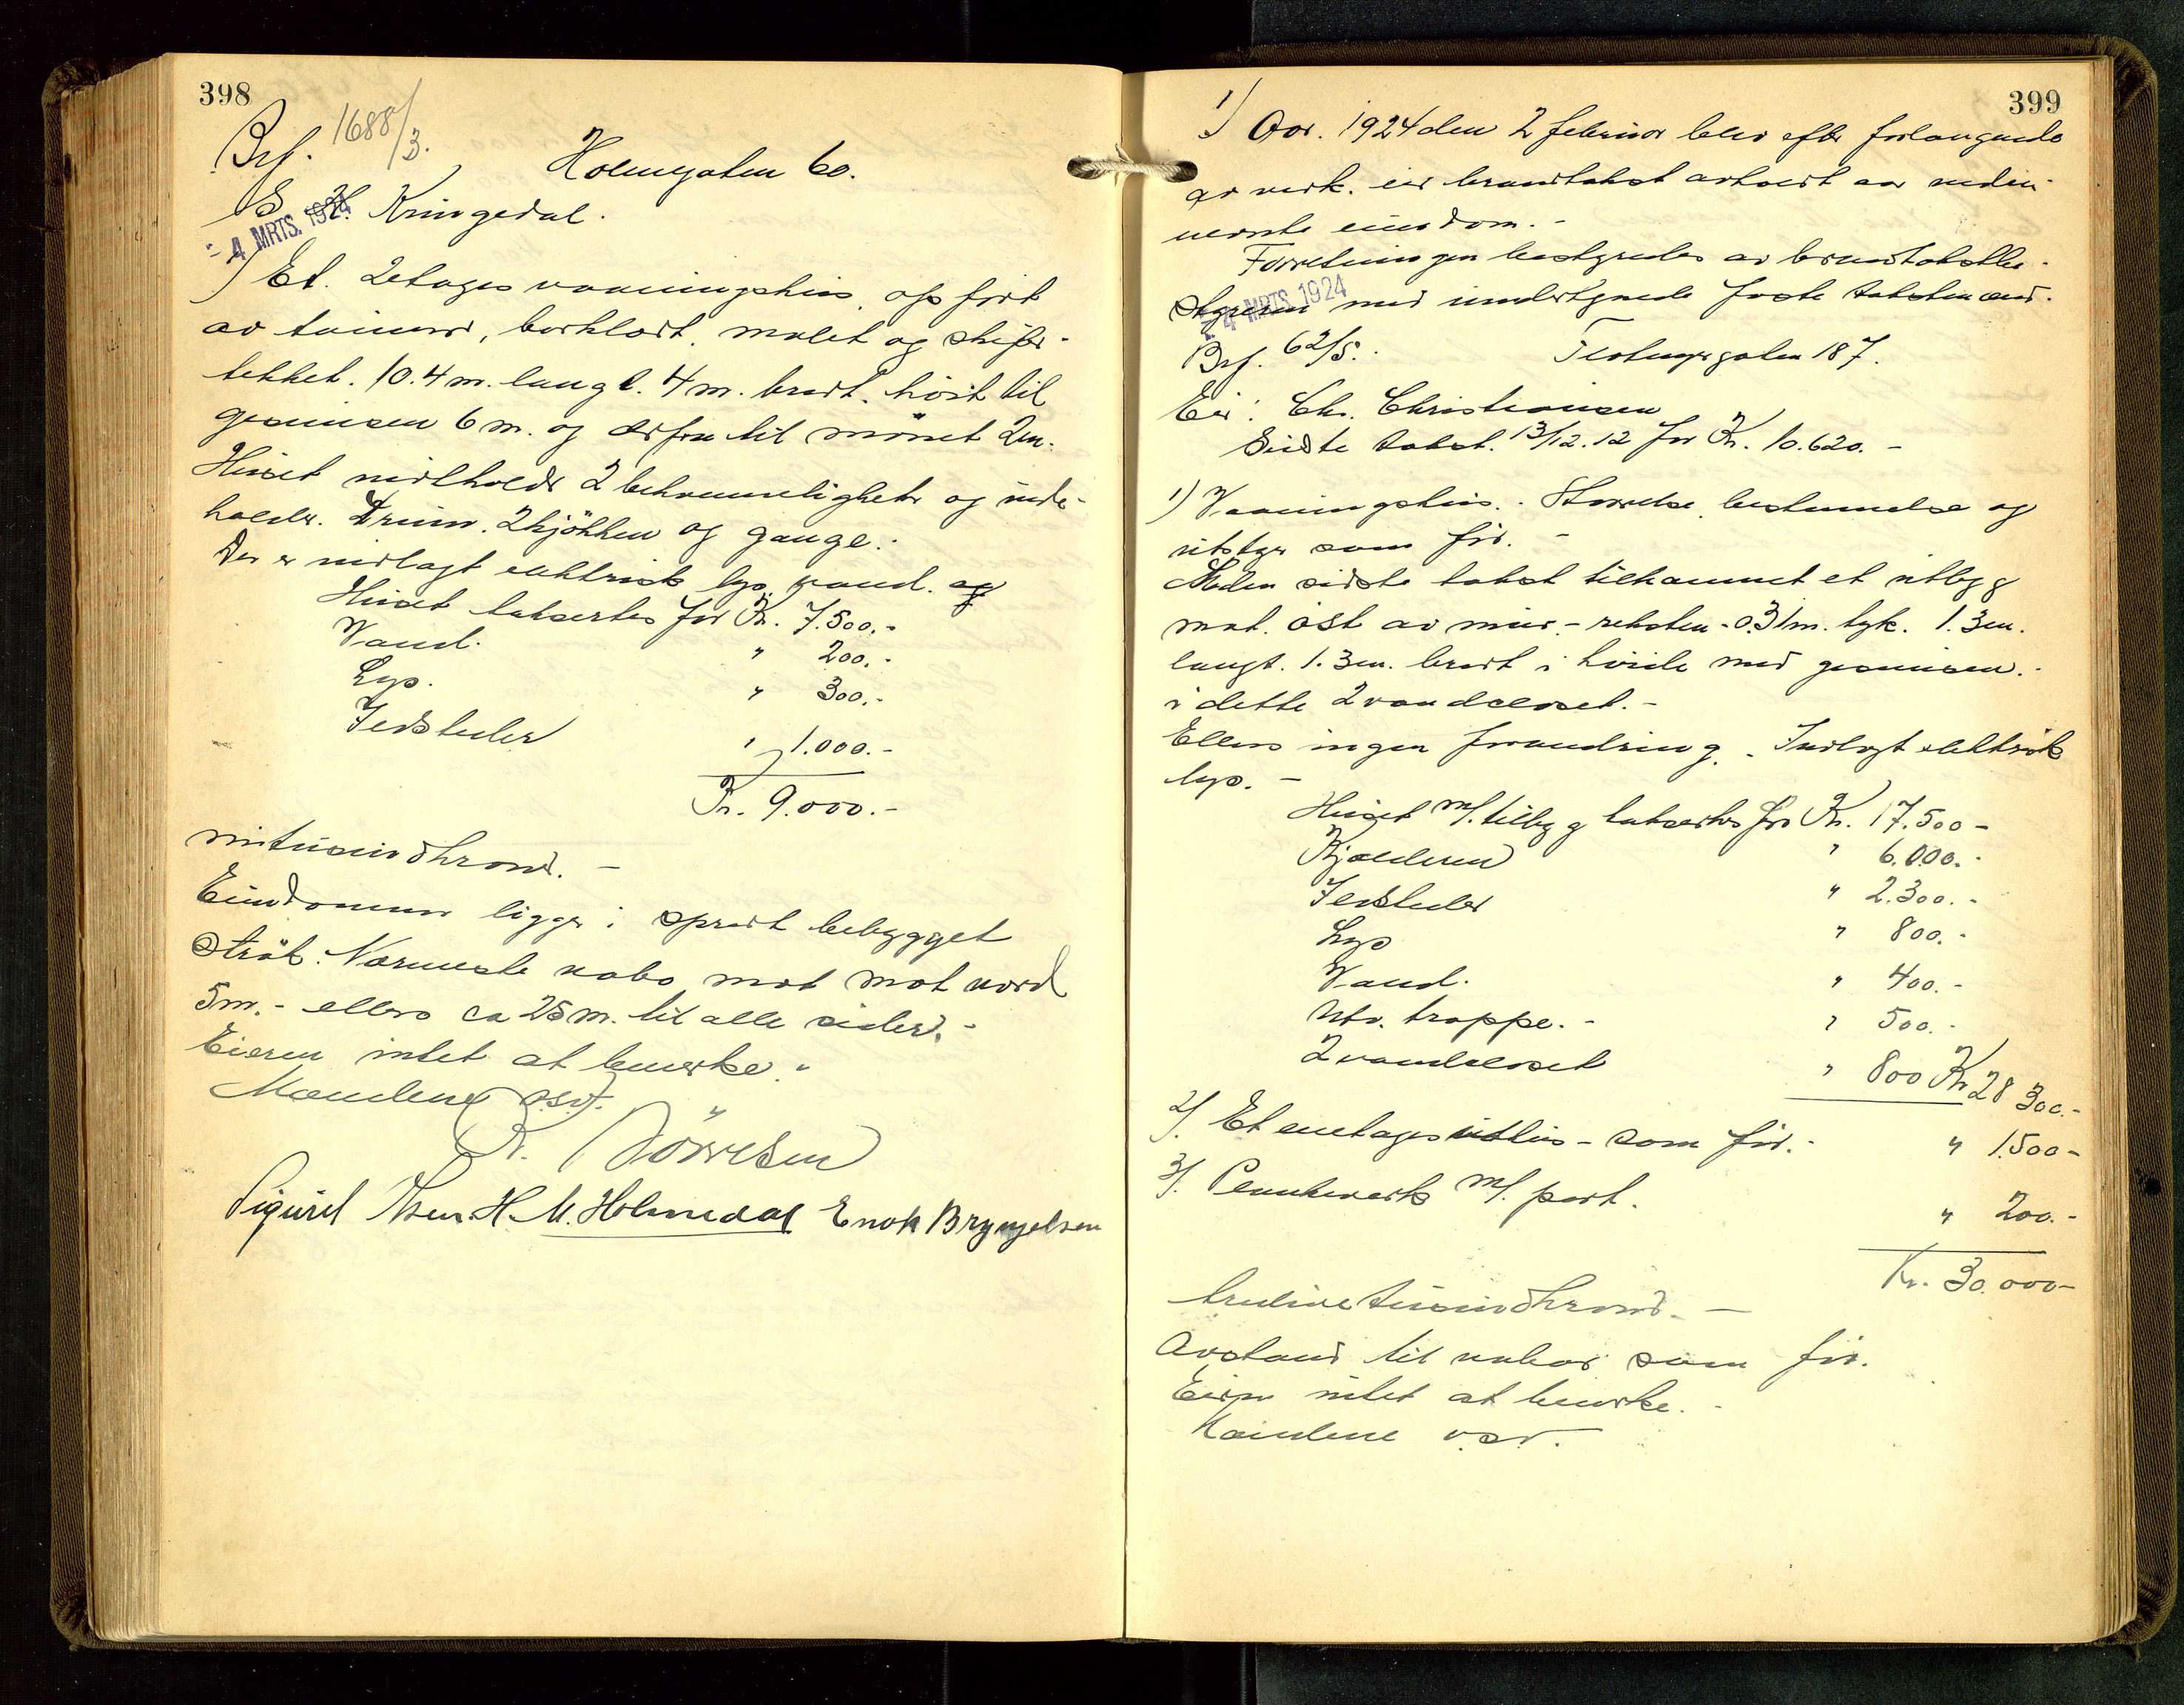 398
Brf. 1688/3.
Holmegaten 60.
S. H. Kringedal.
- 4 MRTS. 1924
1) Et. 2etages vaaningshus, opført
av tømmer, bordklædt, malet og skifer-
tekket. 10.4 m. langt. 4 m. bredt. høit til
gesimsen 6 m. og derfra til mønet 2 m.
Huset indeholder 2 bekvemmeligheter og inde-
holder. 2 kjøkken og gange.
Der er indlagt elektrisk lys, vand. og
Huset takseres for Kr. 7.500.-
Vand. " 200.-
Lys. " 300.-
Ildsteder " 1.000.-
Kr. 9.000.-
nitusindkroner. -
Eiendommen ligger i spredt bebygget
strøk. Nærmeste nabo mot mot nord
5 m. - ellers ca 25 m. til alle sider. -
Eieren intet at bemerke. -
Mændene o.s.v.
R. Tørresen
Sigurd H. M. Holmedal Enok Bryngelsen
399
1) Aar. 1924 den 2 februar blev efter forlangende
av vedk. eier brandtakst avholdt av neden-
nevnte eiendom. -
Forretningen bestyredes av brandtakstbe-
styreren med undertegnede faste takstmænd.
- 4 MRTS. 1924
Brf. 62/5. 187.
Eier: Chr. Christiansen
Sidste takst. 13/12.12 for Kr. 10.620. -
1) Vaaningshus. - Størrelse, bestemmelse og
utstyr som før. -
Siden sidste takst tilkommet et utbygg
mot. øst av mur - teksten - 0.31 m. tyk. 1.3 m.
langt. 1.3 m. bredt i høide med gesimsen. -
i dette 2 vandcloset. -
Ellers ingen forandring. - Indlagt elektrisk
lys. -
Huset m/. tilbygg takseres for Kr. 17.500 -
Kjælderen " 6.000. -
Ildsteder " 2.300. -
Lys " 800. -
Vand. " 400. -
Utv. trappe. - " 500. -
2 vandcloset " 800 Kr 28 300. -
2/. Et enetages uthus - som før. - " 1.500 -
3/. Plankeverk m/. port. " 200. -
Kr. 30.000 -
tredivetusindkroner. -
Avstand til naboer som før.
Eieren intet at bemerke. -
Mændene o.s.v.